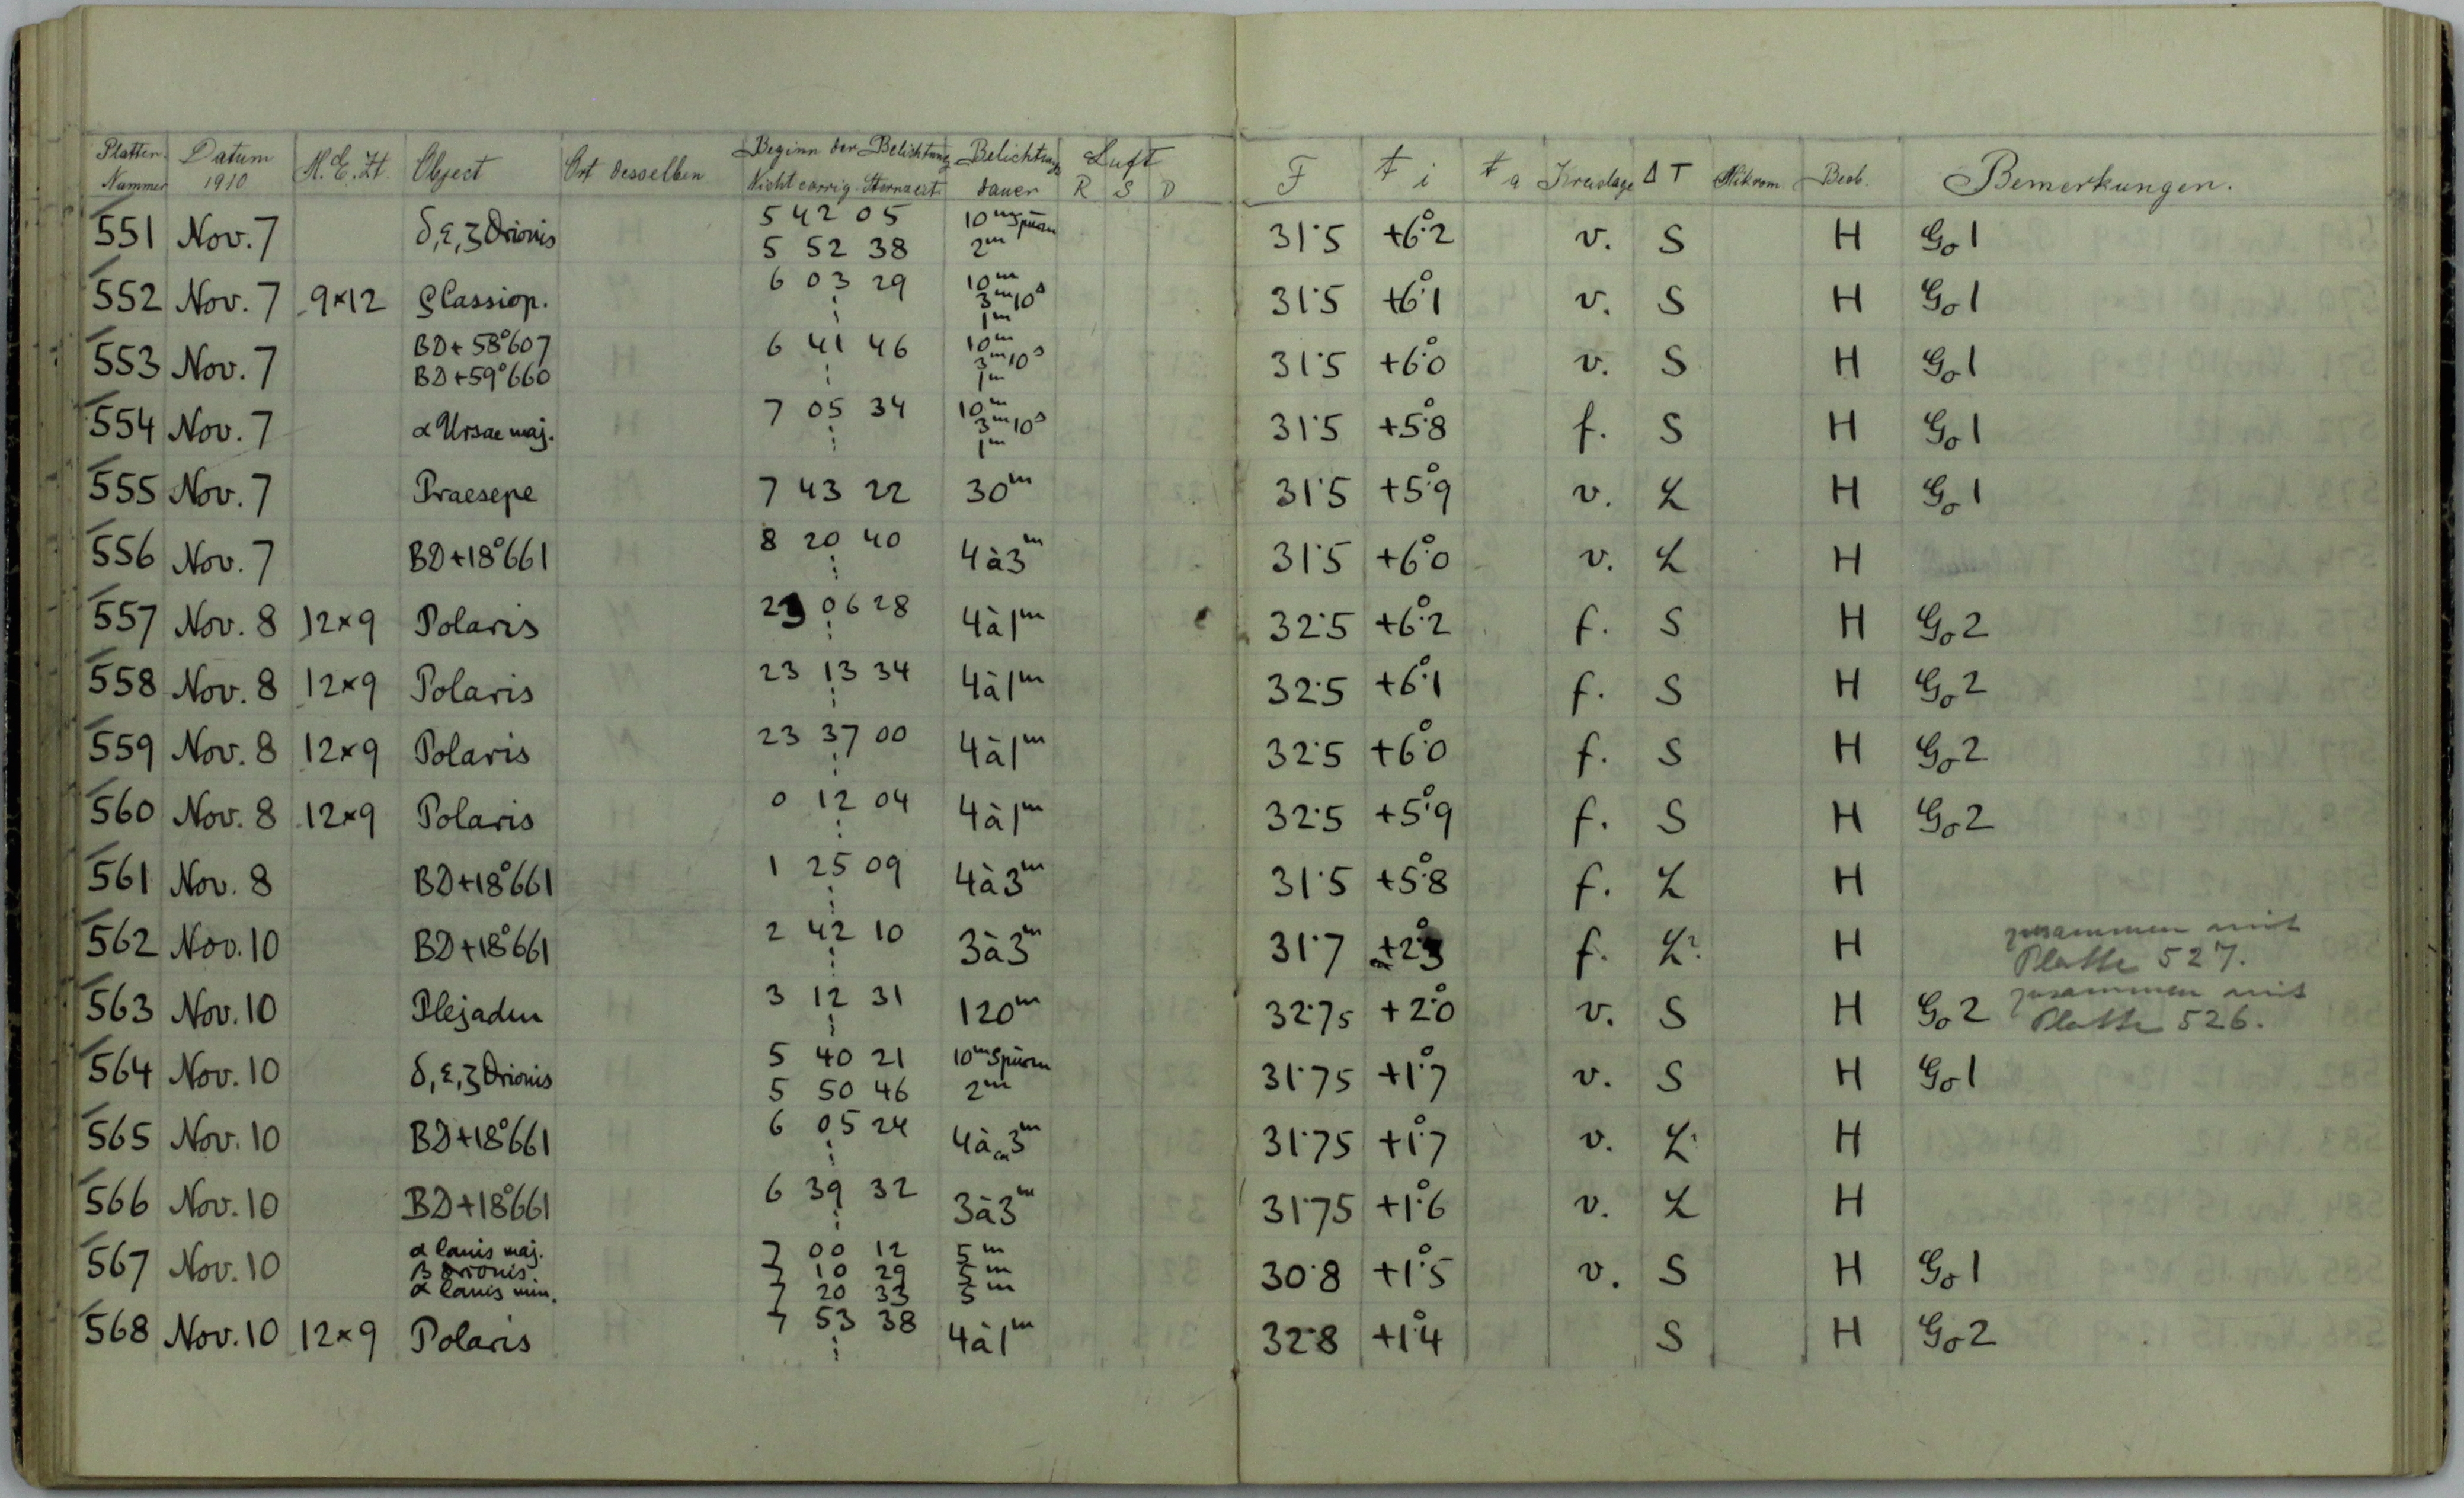 Platten Nummer Datum 1910 M.E.Zt. Object Ort desselben Beginn der Belichtung Nicht corrig. Sternzeit Belichtungs dauer Luft R S D F t i t a Kreislage Δ T Mikrom. Beob. Bemerkungen.
551 Nov. 7 δ, ε, ζ Orionis 5 42 05 10m Spuren 31.5 +6°.2 v. S H Go 1
5 52 38 2m
552 Nov. 7 9×12 Cassiop. 6 03 29 10m 31.5 +6°.1 v. S H Go 1
3m10s
1m
553 Nov. 7 BD+58°607 6 41 46 10m 31.5 +6°.0 v. S H Go 1
BD+59°660 3m10s
1m
554 Nov. 7 α Ursae maj. 7 05 34 10m 31.5 +5°.8 f. S H Go 1
3m10s
1m
555 Nov. 7 Praesepe 7 43 22 30m 31.5 +5°.9 v. L H Go 1
556 Nov. 7 BD+18°661 8 20 40 4à3m 31.5 +6°.0 v. L H
557 Nov. 8 12×9 Polaris 23 06 28 4à1m 32.5 +6°.2 f. S H Go 2
558 Nov. 8 12×9 Polaris 23 13 34 4à1m 32.5 +6°.1 f. S H Go 2
559 Nov. 8 12×9 Polaris 23 37 00 4à1m 32.5 +6°.0 f. S H Go 2
560 Nov. 8 12×9 Polaris 0 12 04 4à1m 32.5 +5°.9 f. S H Go 2
561 Nov. 8 BD+18°661 1 25 09 4à3m 31.5 +5°.8 f. L H
562 Nov. 10 BD+18°661 2 42 10 3à3m 31.7 +2°.3 f. L H zusammen mit
Platte 527.
563 Nov. 10 Plejaden 3 12 31 120m 32.75 +2°.0 v. S H Go 2 zusammen mit
Platte 526.
564 Nov. 10 δ, ε, ζ Orionis 5 40 21 10m Spuren 31.75 +1°.7 v. S H Go 1
5 50 46 2m
565 Nov. 10 BD+18°661 6 05 24 4à3m 31.75 +1°.7 v. L H
566 Nov. 10 BD+18°661 6 39 32 3à3m 31.75 +1°.6 v. L H
567 Nov. 10 α Canis maj. 7 00 12 5m 30.8 +1°.5 v. S H Go 1
β Orionis. 7 10 29 5m
α Canis min. 7 20 33 5m
568 Nov. 10 12×9 Polaris 7 53 38 4à1m 32.8 +1°.4 S H Go 2